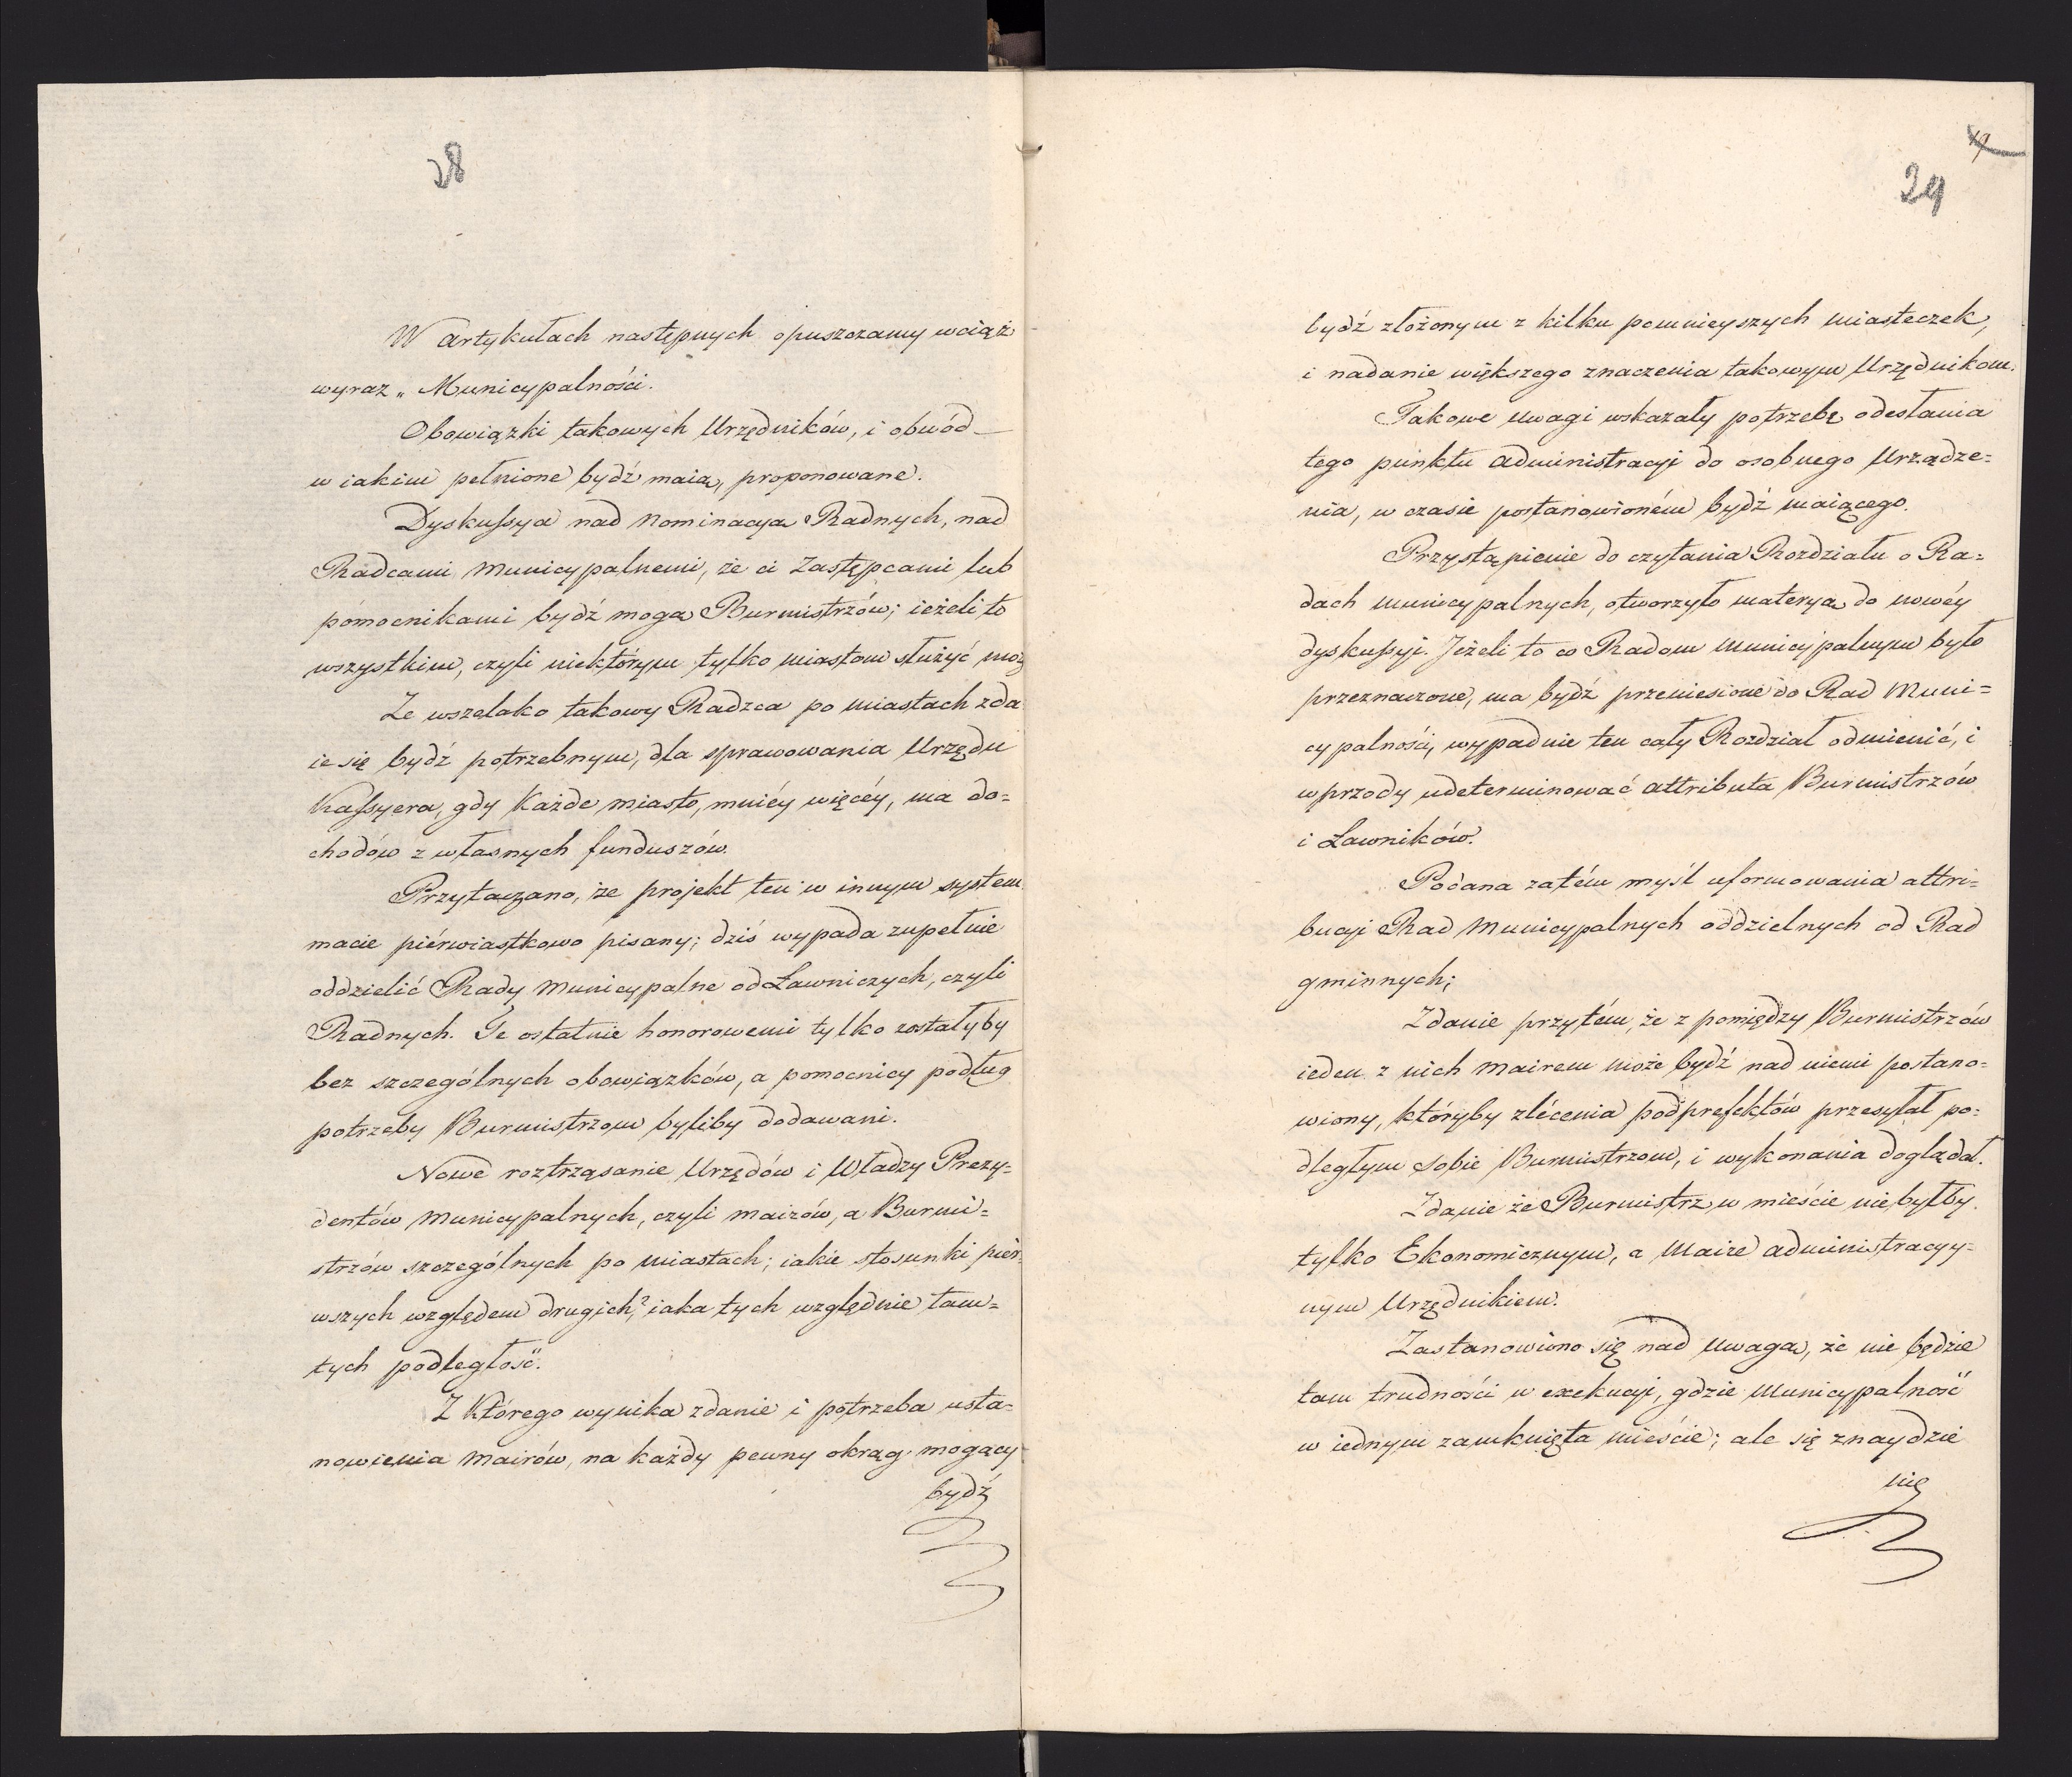 28
W artykułach następnych opuszczamy wciąż
wyraz „ Municypalności.
Obowiązki takowych Urzędników, i obwód
w iakim pełnione bydź maią, proponowane.
Dyskussya nad nominacyą Radnych, nad
Radcami municypalnemi, że ci Zastępcami lub
pomocnikami bydź mogą Burmistrzów; ieżeli to
wszystkim, czyli niektórym tylko miastom służyć moż
Że wszelako takowy Radzca po miastach zda
ie się bydź potrzebnym, dla sprawowania Urzędu
Kassyera, gdy Każde miasto, mniéy więcéy, ma do=
chodów z własnych funduszów.
Przytaczano, że projekt ten w innym system
macie piérwiastkowo pisany; dziś wypada zupełnie
oddzielić Rady municypalne od Ławniczych, czyli
Radnych. Te ostatnie honorowemi tylko zostałyby
bez szczególnych obowiązków, a pomocnicy podług
potrzeby Burmistrzom byliby dodawani.
Nowe roztrząsanie Urzędów i Władzy Prezy=
dentów municypalnych, czyli mairów, a Burmi=
strzów szczególnych po miastach; iakie stosunki pier
wszych względem drugich? iaka tych względnie tam=
tych podległość.
Z Którego wynika zdanie i potrzeba usta=
nowienia mairów, na każdy pewny okrąg mogący
bydź
29
bydź złożonym z kilku pomnieyszych miasteczek,
i nadanie większego znaczenia takowym Urzędnikom.
Takowe uwagi wskazały potrzebę odesłania
tego punktu administracyi do osobnego Urządze=
nia, w czasie postanowioném bydź maiącego.
Przystąpienie do czytania Rozdziału o Ra=
dach municypalnych, otworzyło materyą do nowéy
dyskussyi. Jeżeli to co Radom municypalnym było
przeznaczone, ma bydź przeniesione do Rad muni=
cypalności, wypadnie ten cały Rozdział odmienić, i
wprzody udeterminować attributa Burmistrzów
i Ławników.
Podana zatém myśl uformowania attri=
bucyi Rad municypalnych oddzielnych od Rad
gminnych;
Zdanie przytém, że z pomiędzy Burmistrzów
ieden z nich mairem może bydź nad niemi postano=
wiony, któryby zlécenia podprefektów przesyłał po=
dległym sobie Burmistrzom, i wykonania doglądał.
Zdanie że Burmistrz w mieście nie byłby
tylko Ekonomicznym, a Maire administracyy=
nym Urzędnikiem.
Zastanowiono się nad uwagą, że nie będzie
tam trudności w exekucyi, gdzie municypalność
w iednym zamknięta mieście; ale się znaydzie
nię